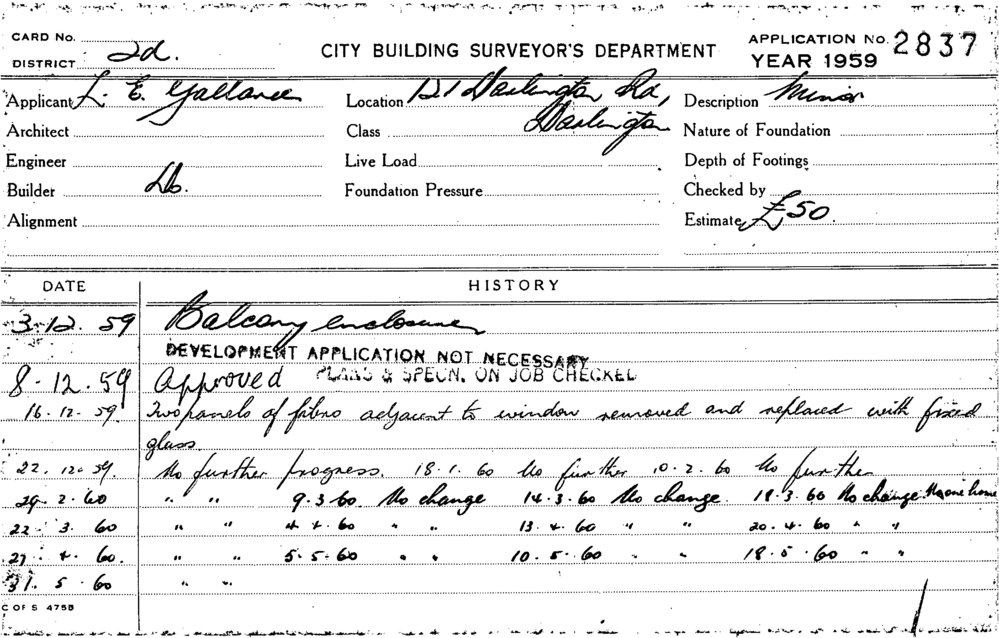 CARD No.
DISTRICT 2d.
CITY BUILDING SURVEYOR'S DEPARTMENT
APPLICATION No. 2837
YEAR 1959
Applicant L. E. Gallance
Location 121 Darlington Rd,
Darlington
Description Minor
Architect
Class
Nature of Foundation
Engineer
Live Load
Depth of Footings
Builder Do.
Foundation Pressure
Checked by
Alignment
Estimate £50.
DATE HISTORY
3.12.59 Balcony enclosure
DEVELOPMENT APPLICATION NOT NECESSARY
8.12.59 Approved PLANS & SPECN. ON JOB CHECKED
16.12.59. Two panels of fibro adjacent to window removed and replaced with fixed
glass.
22.12.59. No further progress. 18.1.60 No further 10.2.60 No further
29.2.60 " " 9.3.60 No change 14.3.60 No change. 18.3.60 No change. No one home
22.3.60 " " 4.4.60 " " 13.4.60 " " 20.4.60 " "
27.4.60. " " 5.5.60 " " 10.5.60 " " 18.5.60 " "
31.5.60 " "
C OF S 4758